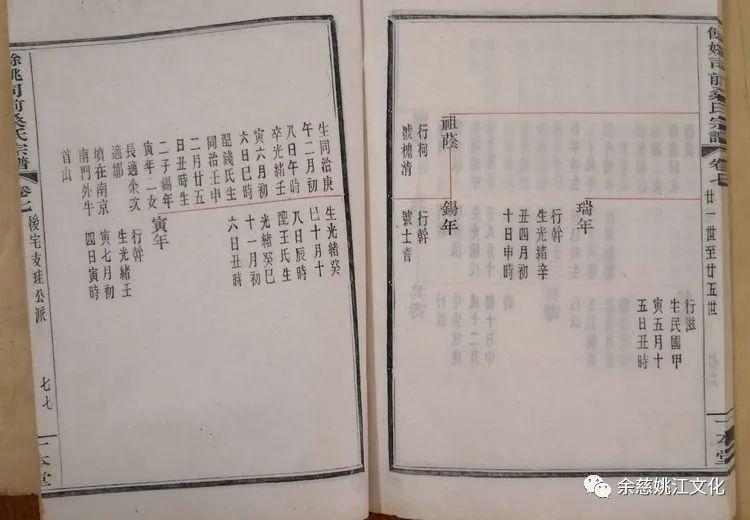 姚司前桑氏宗譜
卷七
廿一世至廿五世
一本堂
行滋
生民國甲
寅五月十
五日丑時
瑞年
行幹
生光緒辛
丑四月初
十日申時
祖蔭
行柯
號槐清
錫年
行幹
號士耆
生同治庚
午二月初
八日午時
卒光緒壬
寅六月初
六日巳時
配錢氏生
同治壬申
二月廿五
日丑時生
二子錫年
寅年一女
長適朱次
適鄒
墳在南京
南門外牛
首山
生光緒癸
巳十月十
八日辰時
配王氏生
光緒癸巳
十一月初
六日丑時
寅年
行幹
生光緒壬
寅七月初
四日寅時
餘姚司前桑氏宗譜
卷七
後宅支珪公派
七七
一本堂
余慈姚江文化